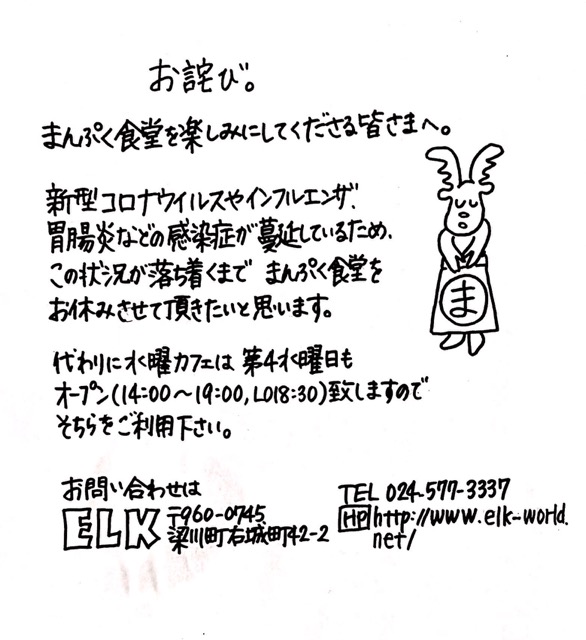 お詫び。
まんぷく食堂を楽しみにしてくださる皆さまへ。
新型コロナウイルスやインフルエンザ、
胃腸炎などの感染症が蔓延しているため、
この状況が落ち着くまで まんぷく食堂を
お休みさせて頂きたいと思います。
ま
代わりに水曜カフェは 第4水曜日も
オープン(14:00〜19:00,LO18:30)致しますので
そちらをご利用下さい。
お問い合わせは
ELK 〒960-0745
梁川町右城町42-2
TEL 024-577-3337
HP http://www.elk-world.
net/